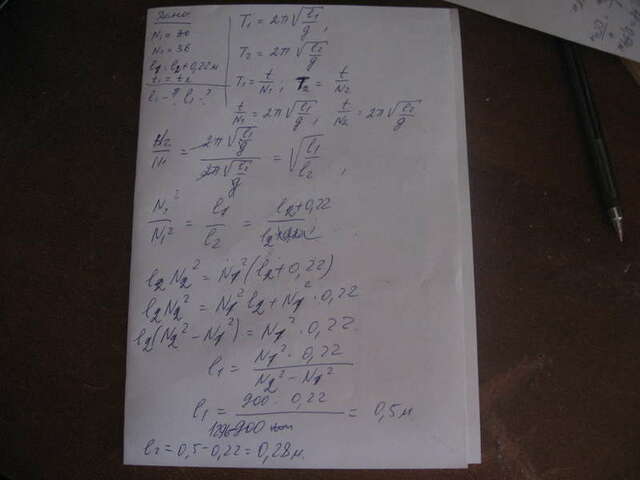 Дано
N₁ = 30
N₂ = 36
l₁ = l₂ + 0,22 м
t₁ = t₂
l₁ - ? l₂ - ?
T₁ = 2π√(l₁/g),
T₂ = 2π√(l₂/g)
T₁ = t/N₁; T₂ = t/N₂
t/N₁ = 2π√(l₁/g), t/N₂ = 2π√(l₂/g)
N₂/N₁ = 2π√(l₁/g) / 2π√(l₂/g) = √(l₁/l₂),
N₂²/N₁² = l₁/l₂ = (l₂+0,22)/l₂
l₂N₂² = N₁²(l₂+0,22)
l₂N₂² = N₁²l₂ + N₁²·0,22
l₂(N₂² - N₁²) = N₁²·0,22
l₁ = N₁²·0,22 / (N₂² - N₁²)
l₁ = 900·0,22 / (1296-900) = 0,5 м
l₂ = 0,5 - 0,22 = 0,28 м.